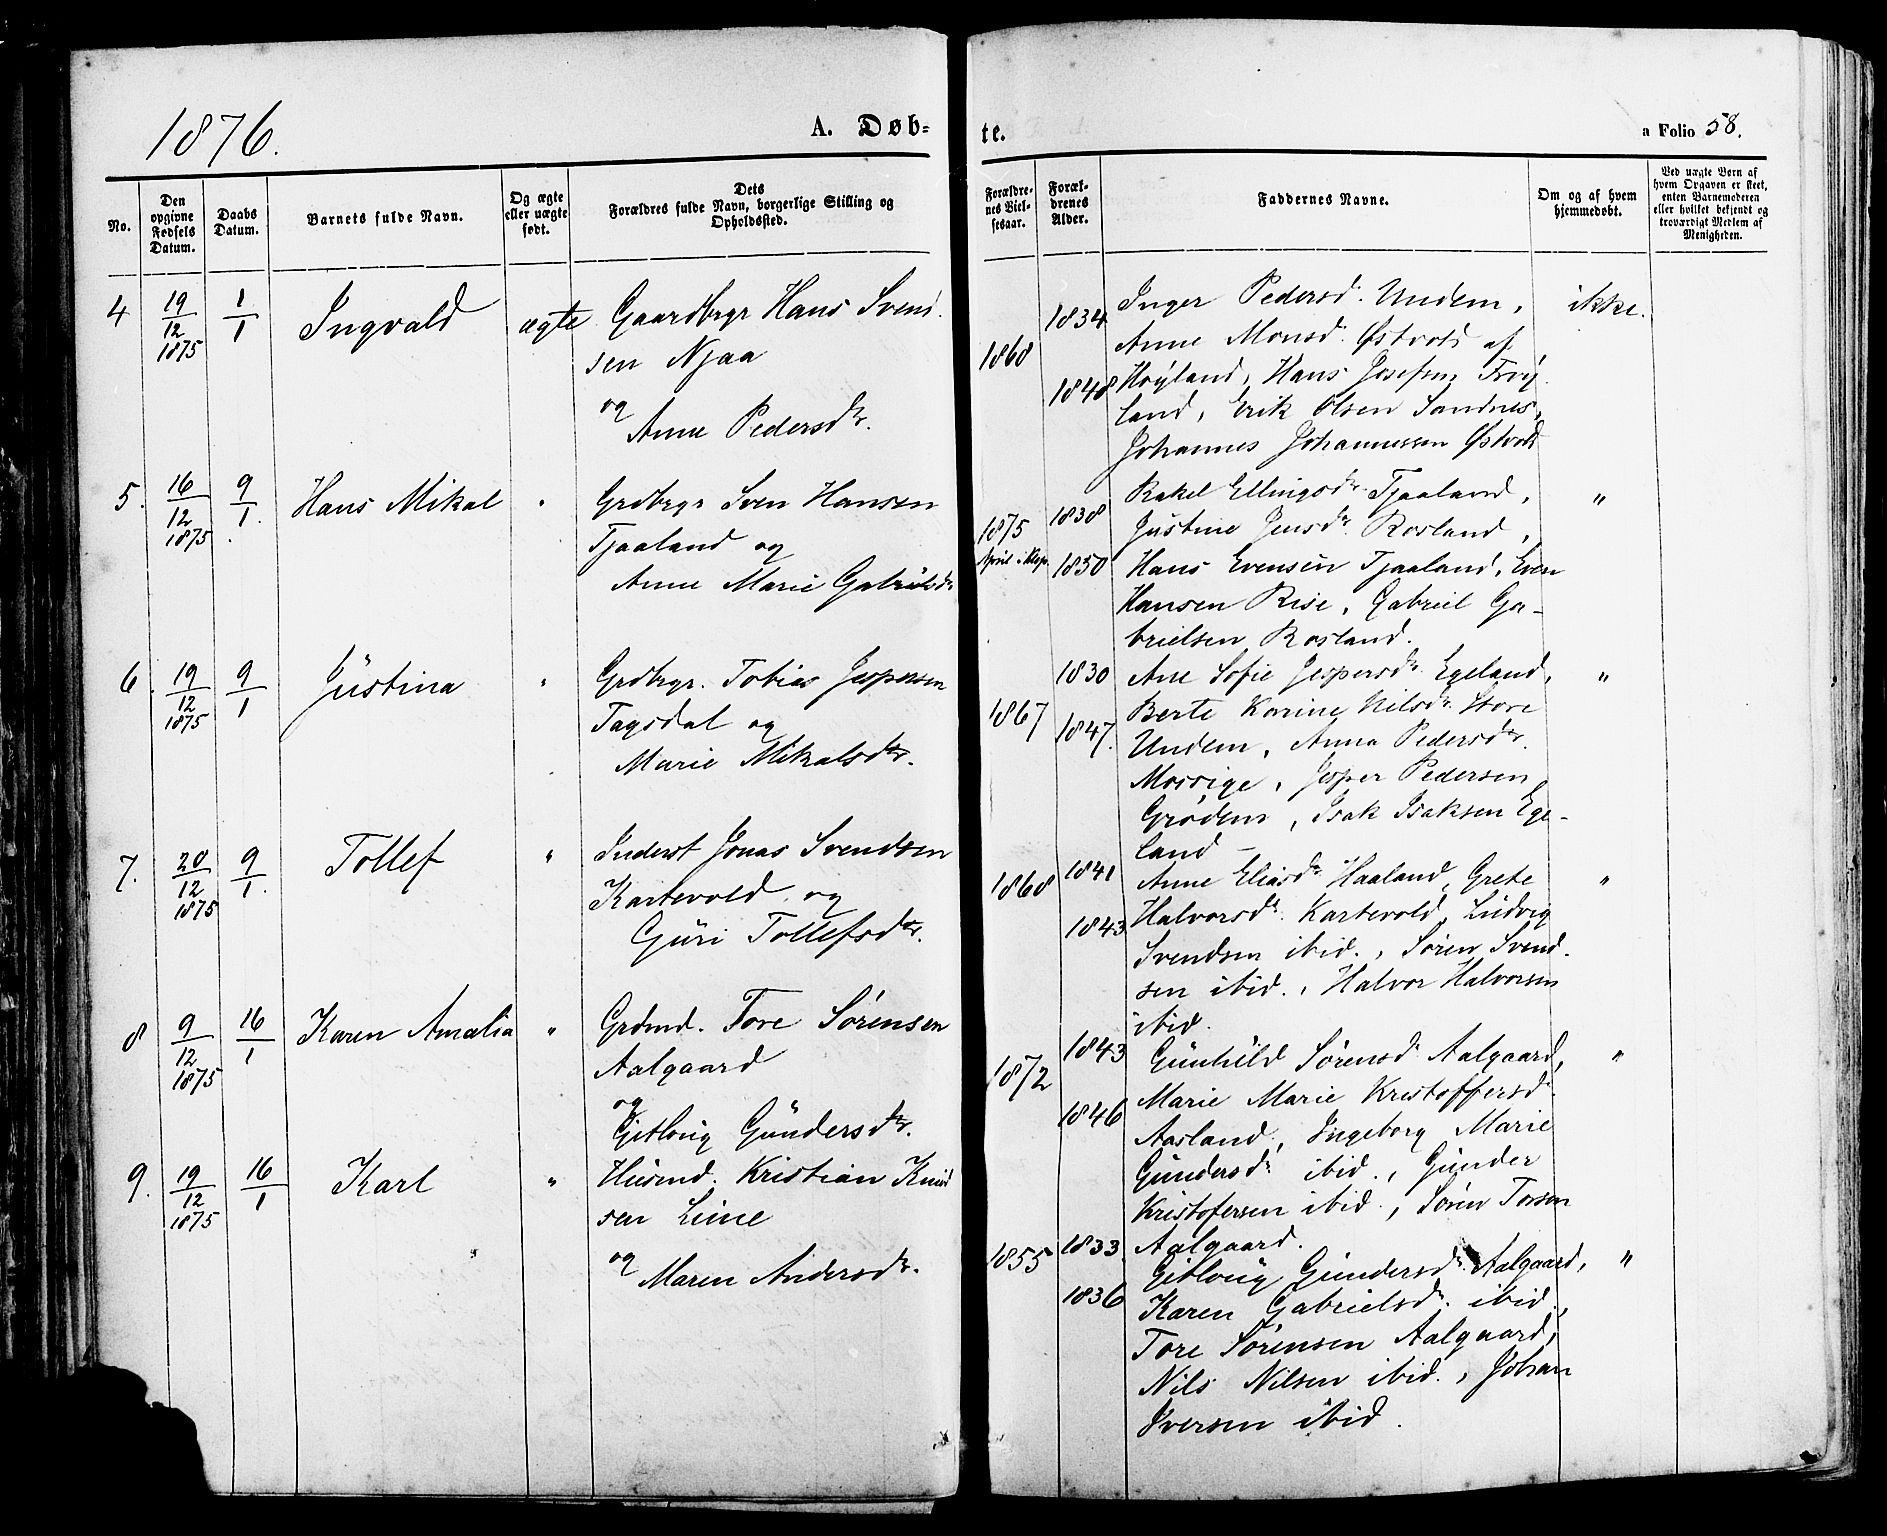 1876.
A. Døb=
te.
a Folio 58.
No.
Den
opgivne
Fødsels
Datum.
Daabs
Datum.
Barnets fulde Navn.
Og ægte
eller uægte
født.
Dets
Forældres fulde Navn, borgerlige Stilling og
Opholdssted.
Forældre-
nes Viel-
sesaar.
Foræl-
drenes
Alder.
Faddernes Navne.
Om og af hvem
hjemmedøbt.
Ved uægte Børn af
hvem Opgaven er skeet,
enten Barnemoderen
eller hvilket bekjendt og
troværdigt Medlem af
Menigheden.
4 19/12 1875 1/1 Ingvald ægte Gaardbrgr Hans Svend-
sen Njaa
og
Anne Pedersdtr.
1868
1834
1848
Inger Pedersd. Undem,
Anne Monsd. Østvold af
Høyland, Hans Josefsen Frøy-
land, Erik Olsen Sandnes,
Johannes Johannessen Østvold
ikke.
5. 16/12 1875. 9/1. Hans Mikal " Grdbrgr Sven Hansen
Tjaaland og
Anne Marie Gabrielsdr
1875
April i Klep.
1838
1850
Rakel Ellingsdr. Tjaaland,
Justine Jensdr. Rosland,
Hans Evensen Tjaaland, Even
Hansen Rise, Gabriel Ga-
brielsen Rosland.
"
6. 19/12 1875 9/1 Justina " Grdbrgr. Tobias Jespersen
Tagsdal og
Marie Mikalsdtr.
1867
1830
1847.
Ane Sofie Jespersdr. Egeland,
Berte Korrine Nilsdr. Store
Undem, Anna Pedersdtr.
Morrige, Jesper Pedersen
Grødem, Isak Isaksen Ege-
land -
"
7. 20/12 1875 9/1. Tollef " Inderst Jonas Svendsen
Kartevold og
Guri Tollefsdtr.
1868
1841
1843
Anne Eliasdr Haaland, Grete
Halvorsdr. Kartevold, Ludvig
Svendsen ibid., Søren Svend-
sen ibid., Halvor Halvorsen
ibid.
"
8 9/12 1875 16/1 Karen Amalia " Grdmd. Tore Sørensen
Aalgaard
og
Gitlovig Gundersdtr.
1872
1843
1846
Gunhild Sørensd. Aalgaard,
Marie Marie Kristoffersd.
Aasland, Ingeborg Marie
Gundersdr. ibid., Gunder
Kristofersen ibid., Søren Torsen
Aalgaard.
"
9. 19/12 1875 16/1 Karl " Husmd. Kristian Knud-
sen Lime
og
Maren Andersdr.
1855
1833
1836
Gitlovig Gundersdr. Aalgaard,
Karen Gabrielsdr. ibid.,
Tore Sørensen Aalgaard,
Nils Nilsen ibid., Johan
Iversen ibid.
"